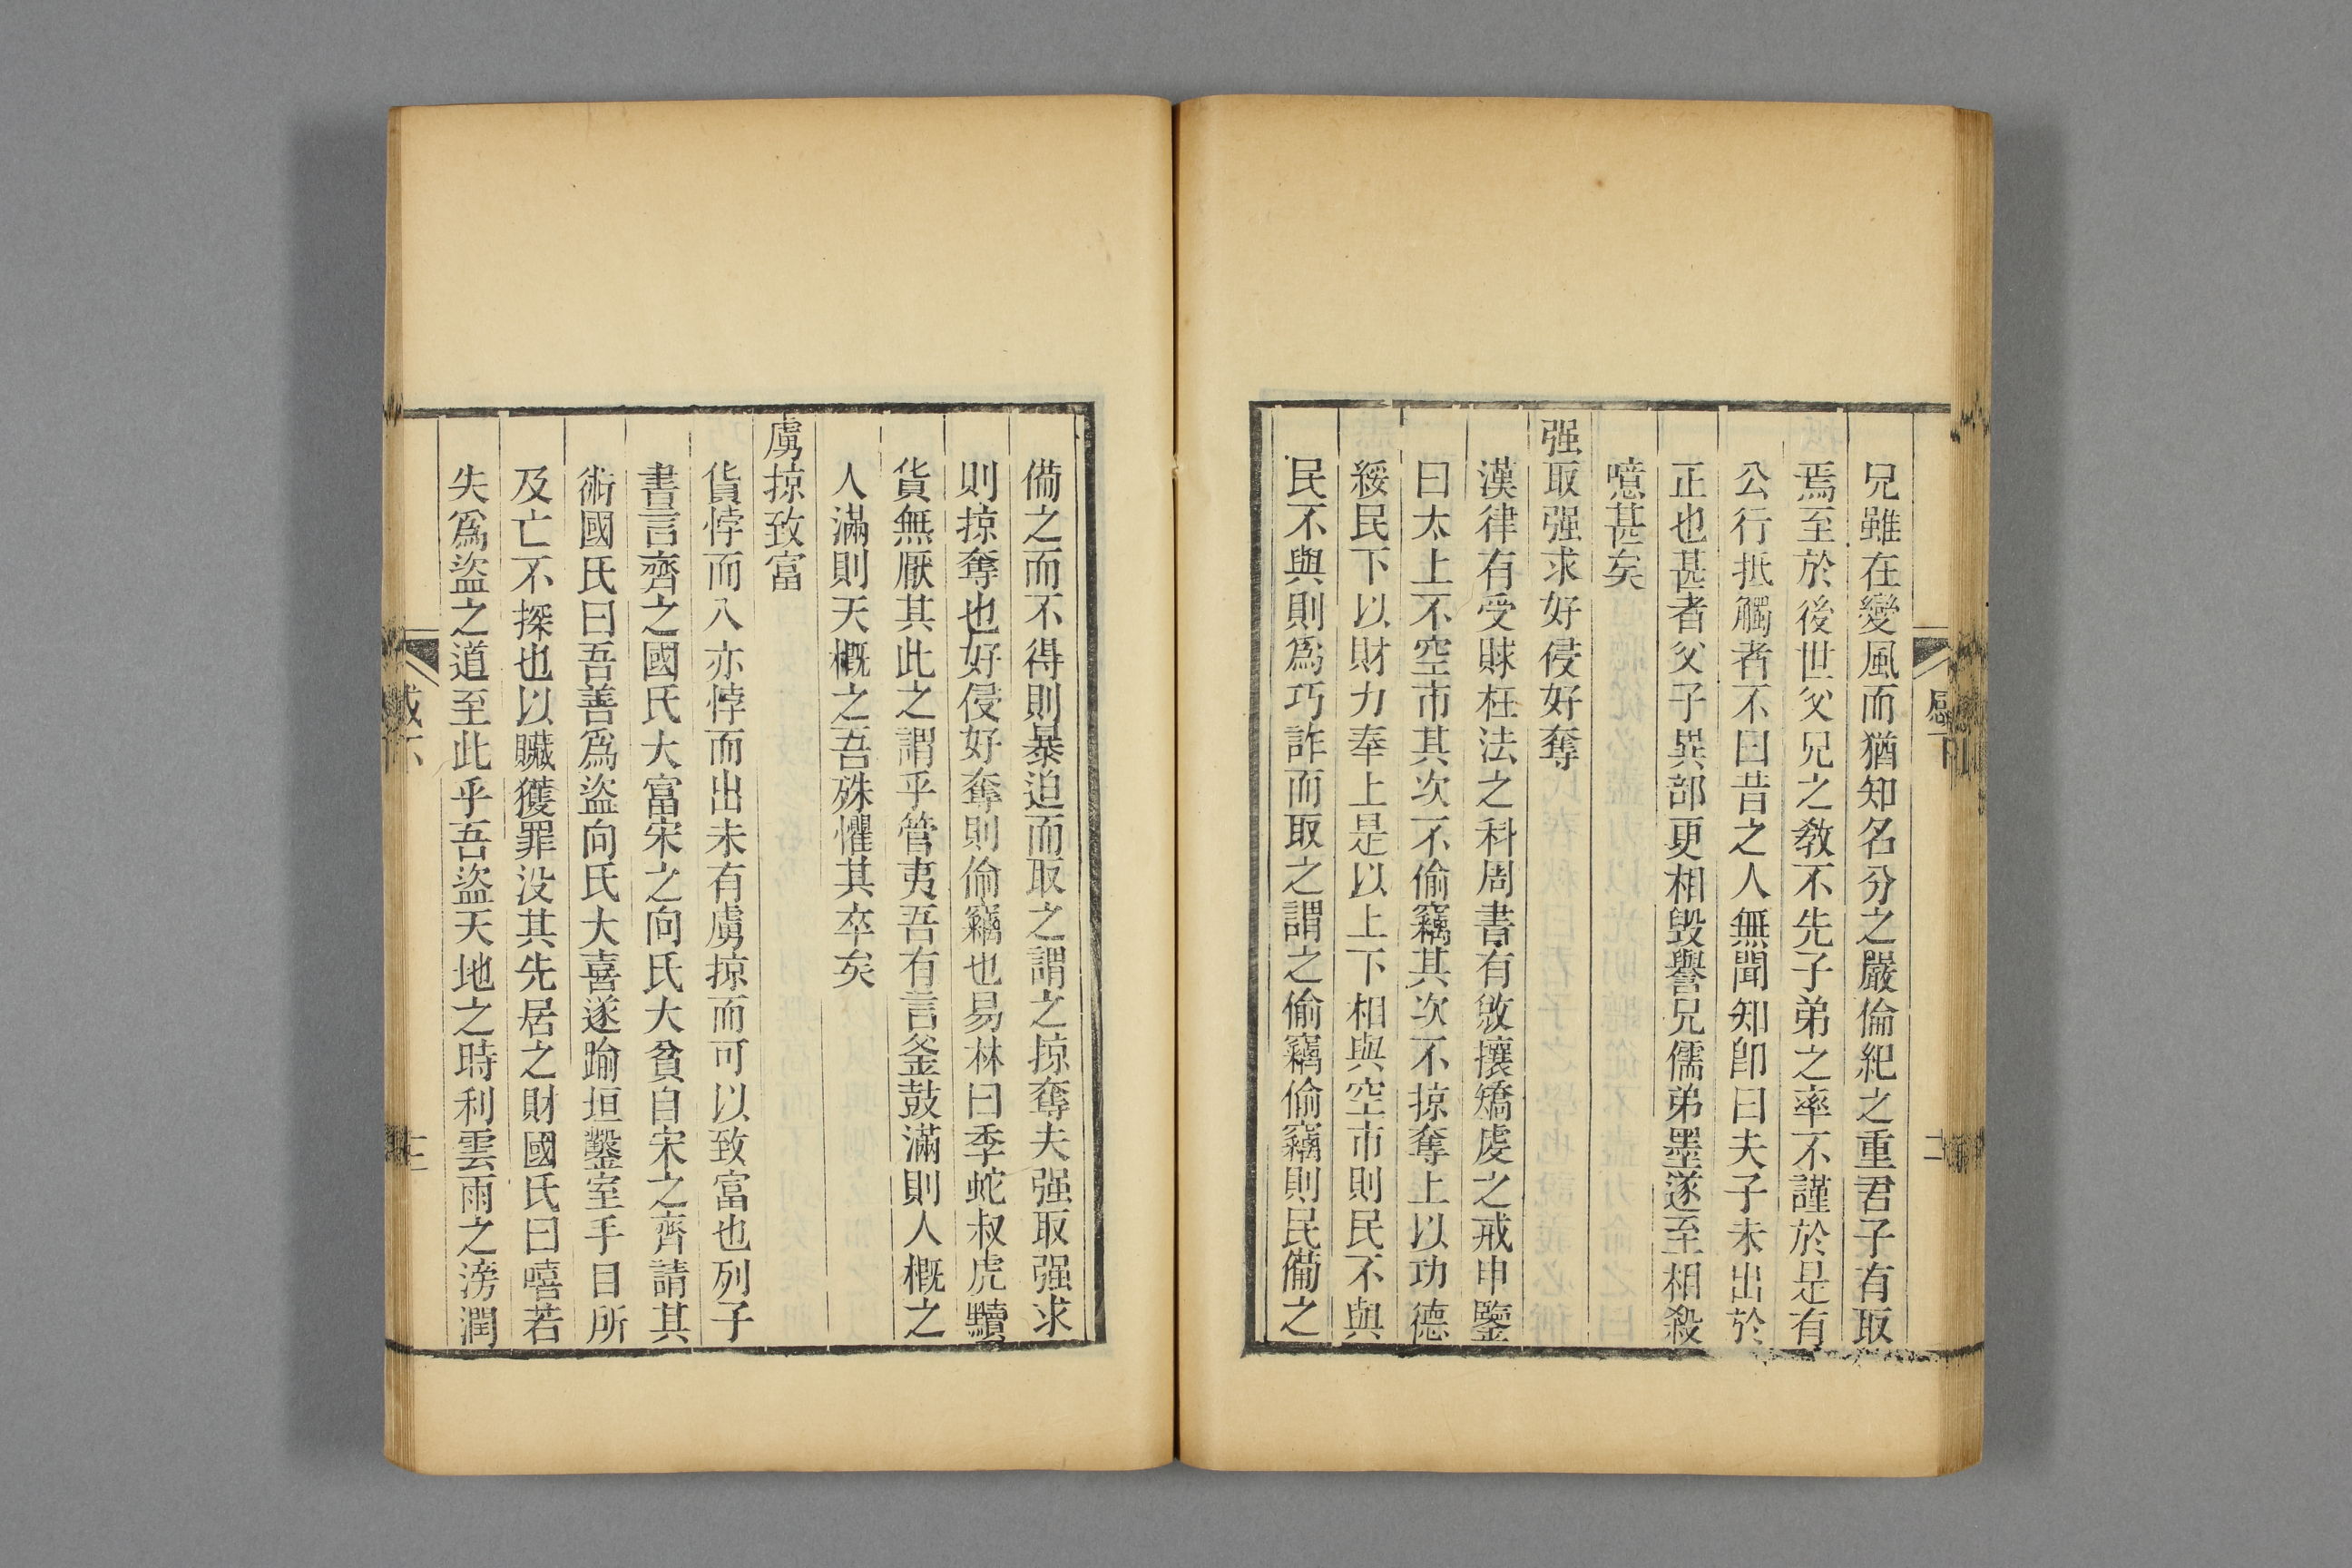 感下
十二
兄雖在變風而猶知名分之嚴倫紀之重君子有取
焉至於後世父兄之教不先子弟之率不謹於是有
公行抵觸者不曰昔之人無聞知卽曰夫子未出於
正也甚者父子異部更相毀譽兄儒弟墨遂至相殺
噫甚矣
强取强求好侵好奪
漢律有受賕枉法之科周書有敓攘矯虔之戒申鑒
曰太上不空市其次不偷竊其次不掠奪上以功德
綏民下以財力奉上是以上下相與空市則民不與
民不與則爲巧詐而取之謂之偷竊偷竊則民備之
備之而不得則暴迫而取之謂之掠奪夫强取强求
則掠奪也好侵好奪則偷竊也易林曰季蛇叔虎黷
貨無厭其此之謂乎管夷吾有言釜鼓滿則人概之
人滿則天概之吾殊懼其卒矣
虜掠致富
貨悖而入亦悖而出未有虜掠而可以致富也列子
書言齊之國氏大富宋之向氏大貧自宋之齊請其
術國氏曰吾善爲盜向氏大喜遂踰垣鑿室手目所
及亡不探也以贜獲罪没其先居之財國氏曰嘻若
失爲盜之道至此乎吾盜天地之時利雲雨之滂潤
感下